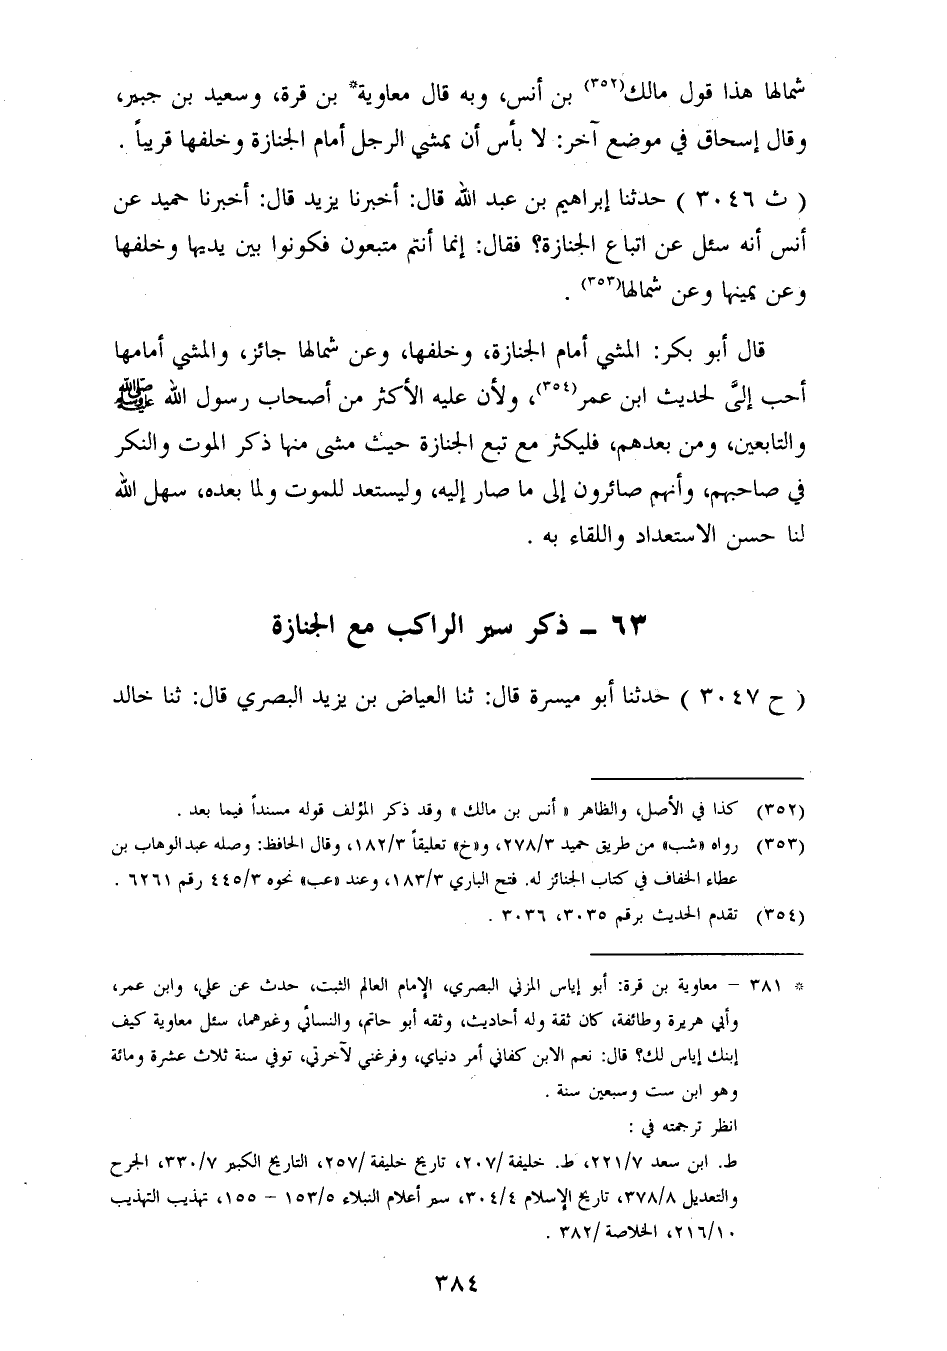 شمالها هذا قول مالك(٣٥٢) بن أنس، وبه قال معاوية* بن قرة، وسعيد بن جبير،
وقال إسحاق في موضع آخر: لا بأس أن يمشي الرجل أمام الجنازة وخلفها قريباً .
( ث ٣٠٤٦ ) حدثنا إبراهيم بن عبد الله قال: أخبرنا يزيد قال: أخبرنا حميد عن
أنس أنه سئل عن اتباع الجنازة؟ فقال: إنما أنتم متبعون فكونوا بين يديها وخلفها
وعن يمينها وعن شمالها(٣٥٣) .
قال أبو بكر: المشي أمام الجنازة، وخلفها، وعن شمالها جائز، والمشي أمامها
أحب إليَّ لحديث ابن عمر(٣٥٤)، ولأن عليه الأكثر من أصحاب رسول الله ﷺ
والتابعين، ومن بعدهم، فليكثر مع تبع الجنازة حيث مشى منها ذكر الموت والنكر
في صاحبهم، وأنهم صائرون إلى ما صار إليه، وليستعد للموت ولما بعده، سهل الله
لنا حسن الاستعداد واللقاء به .
٦٣ - ذكر سير الراكب مع الجنازة
( ح ٣٠٤٧ ) حدثنا أبو ميسرة قال: ثنا العياض بن يزيد البصري قال: ثنا خالد
(٣٥٢) كذا في الأصل، والظاهر « أنس بن مالك » وقد ذكر المؤلف قوله مسنداً فيما بعد .
(٣٥٣) رواه «شب» من طريق حميد ٢٧٨/٣، و«خ» تعليقاً ١٨٢/٣، وقال الحافظ: وصله عبدالوهاب بن
عطاء الخفاف في كتاب الجنائز له. فتح الباري ١٨٣/٣، وعند «عب» نحوه ٤٤٥/٣ رقم ٦٢٦١ .
(٣٥٤) تقدم الحديث برقم ٣٠٣٥، ٣٠٣٦ .
* ٣٨١ - معاوية بن قرة: أبو إياس المزني البصري، الإمام العالم الثبت، حدث عن علي، وابن عمر،
وأبي هريرة وطائفة، كان ثقة وله أحاديث، وثقه أبو حاتم، والنسائي وغيرهما، سئل معاوية كيف
إبنك إياس لك؟ قال: نعم الابن كفاني أمر دنياي، وفرغني لآخرتي، توفي سنة ثلاث عشرة ومائة
وهو ابن ست وسبعين سنة .
انظر ترجمته في :
ط. ابن سعد ٢٢١/٧، ط. خليفة /٢٠٧، تاريخ خليفة /٢٥٧، التاريخ الكبير ٣٣٠/٧، الجرح
والتعديل ٣٧٨/٨، تاريخ الإسلام ٣٠٤/٤، سير أعلام النبلاء ١٥٣/٥ - ١٥٥، تهذيب التهذيب
٢١٦/١٠، الخلاصة /٣٨٢ .
٣٨٤